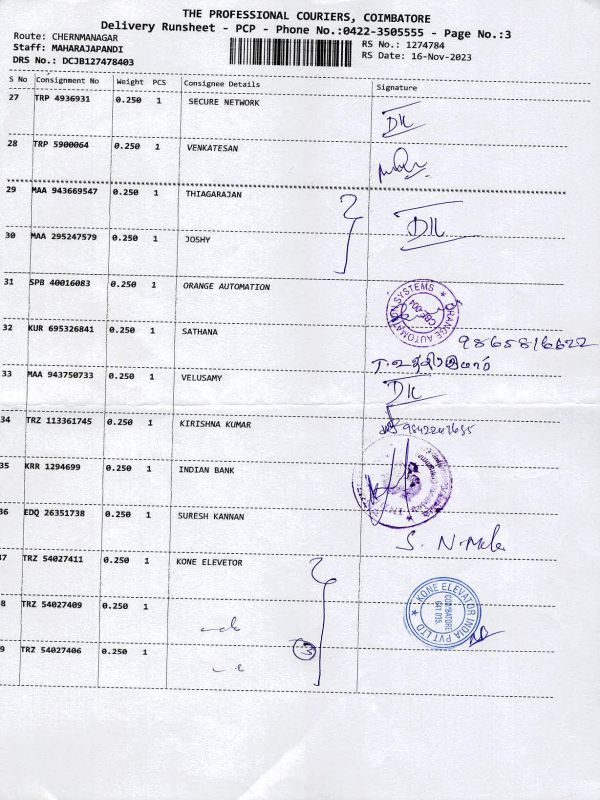 THE PROFESSIONAL COURIERS, COIMBATORE
Delivery Runsheet - PCP - Phone No.:0422-3505555 - Page No.:3
Route: CHERNMANAGAR
Staff: MAHARAJAPANDI
RS No.: 1274784
DRS No.: DCJB127478403
RS Date: 16-Nov-2023
S No Consignment No Weight PCS Consignee Details Signature
27 TRP 4936931 0.250 1 SECURE NETWORK
28 TRP 5900064 0.250 1 VENKATESAN
29 MAA 943669547 0.250 1 THIAGARAJAN
30 MAA 295247579 0.250 1 JOSHY
31 SPB 40016083 0.250 1 ORANGE AUTOMATION
ORANGE AUTOMATION SYSTEMS
CBE-004
32 KUR 695326841 0.250 1 SATHANA 9865816622
33 MAA 943750733 0.250 1 VELUSAMY
34 TRZ 113361745 0.250 1 KIRISHNA KUMAR
35 KRR 1294699 0.250 1 INDIAN BANK
36 EDQ 26351738 0.250 1 SURESH KANNAN
37 TRZ 54027411 0.250 1 KONE ELEVETOR
KONE ELEVATOR INDIA PVT LTD
COIMBATORE
641 015.
8 TRZ 54027409 0.250 1
9 TRZ 54027406 0.250 1